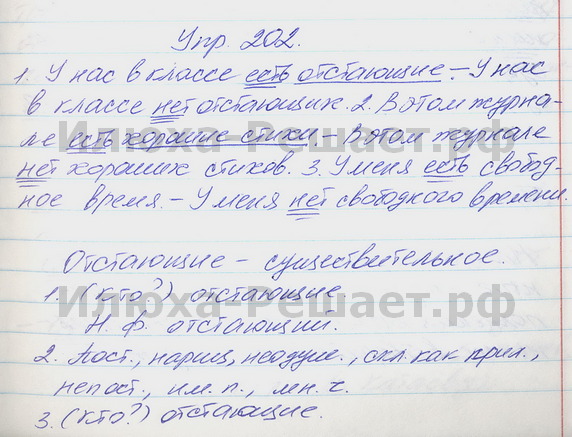 Упр. 202.
1. У нас в классе есть отстающие. – У нас
в классе нет отстающих. 2. В этом журна-
ле есть хорошие стихи. – В этом журнале
Илюха-Решает.рф
нет хороших стихов. 3. У меня есть свобод-
ное время. – У меня нет свободного времени.
Отстающие – существительное.
1. (кто?) отстающие.
Илюха-Решает.рф
Н. ф. отстающий.
2. Пост., нариц., неодуш., скл. как прил.,
непост., им. п., мн. ч.
3. (кто?) отстающие.